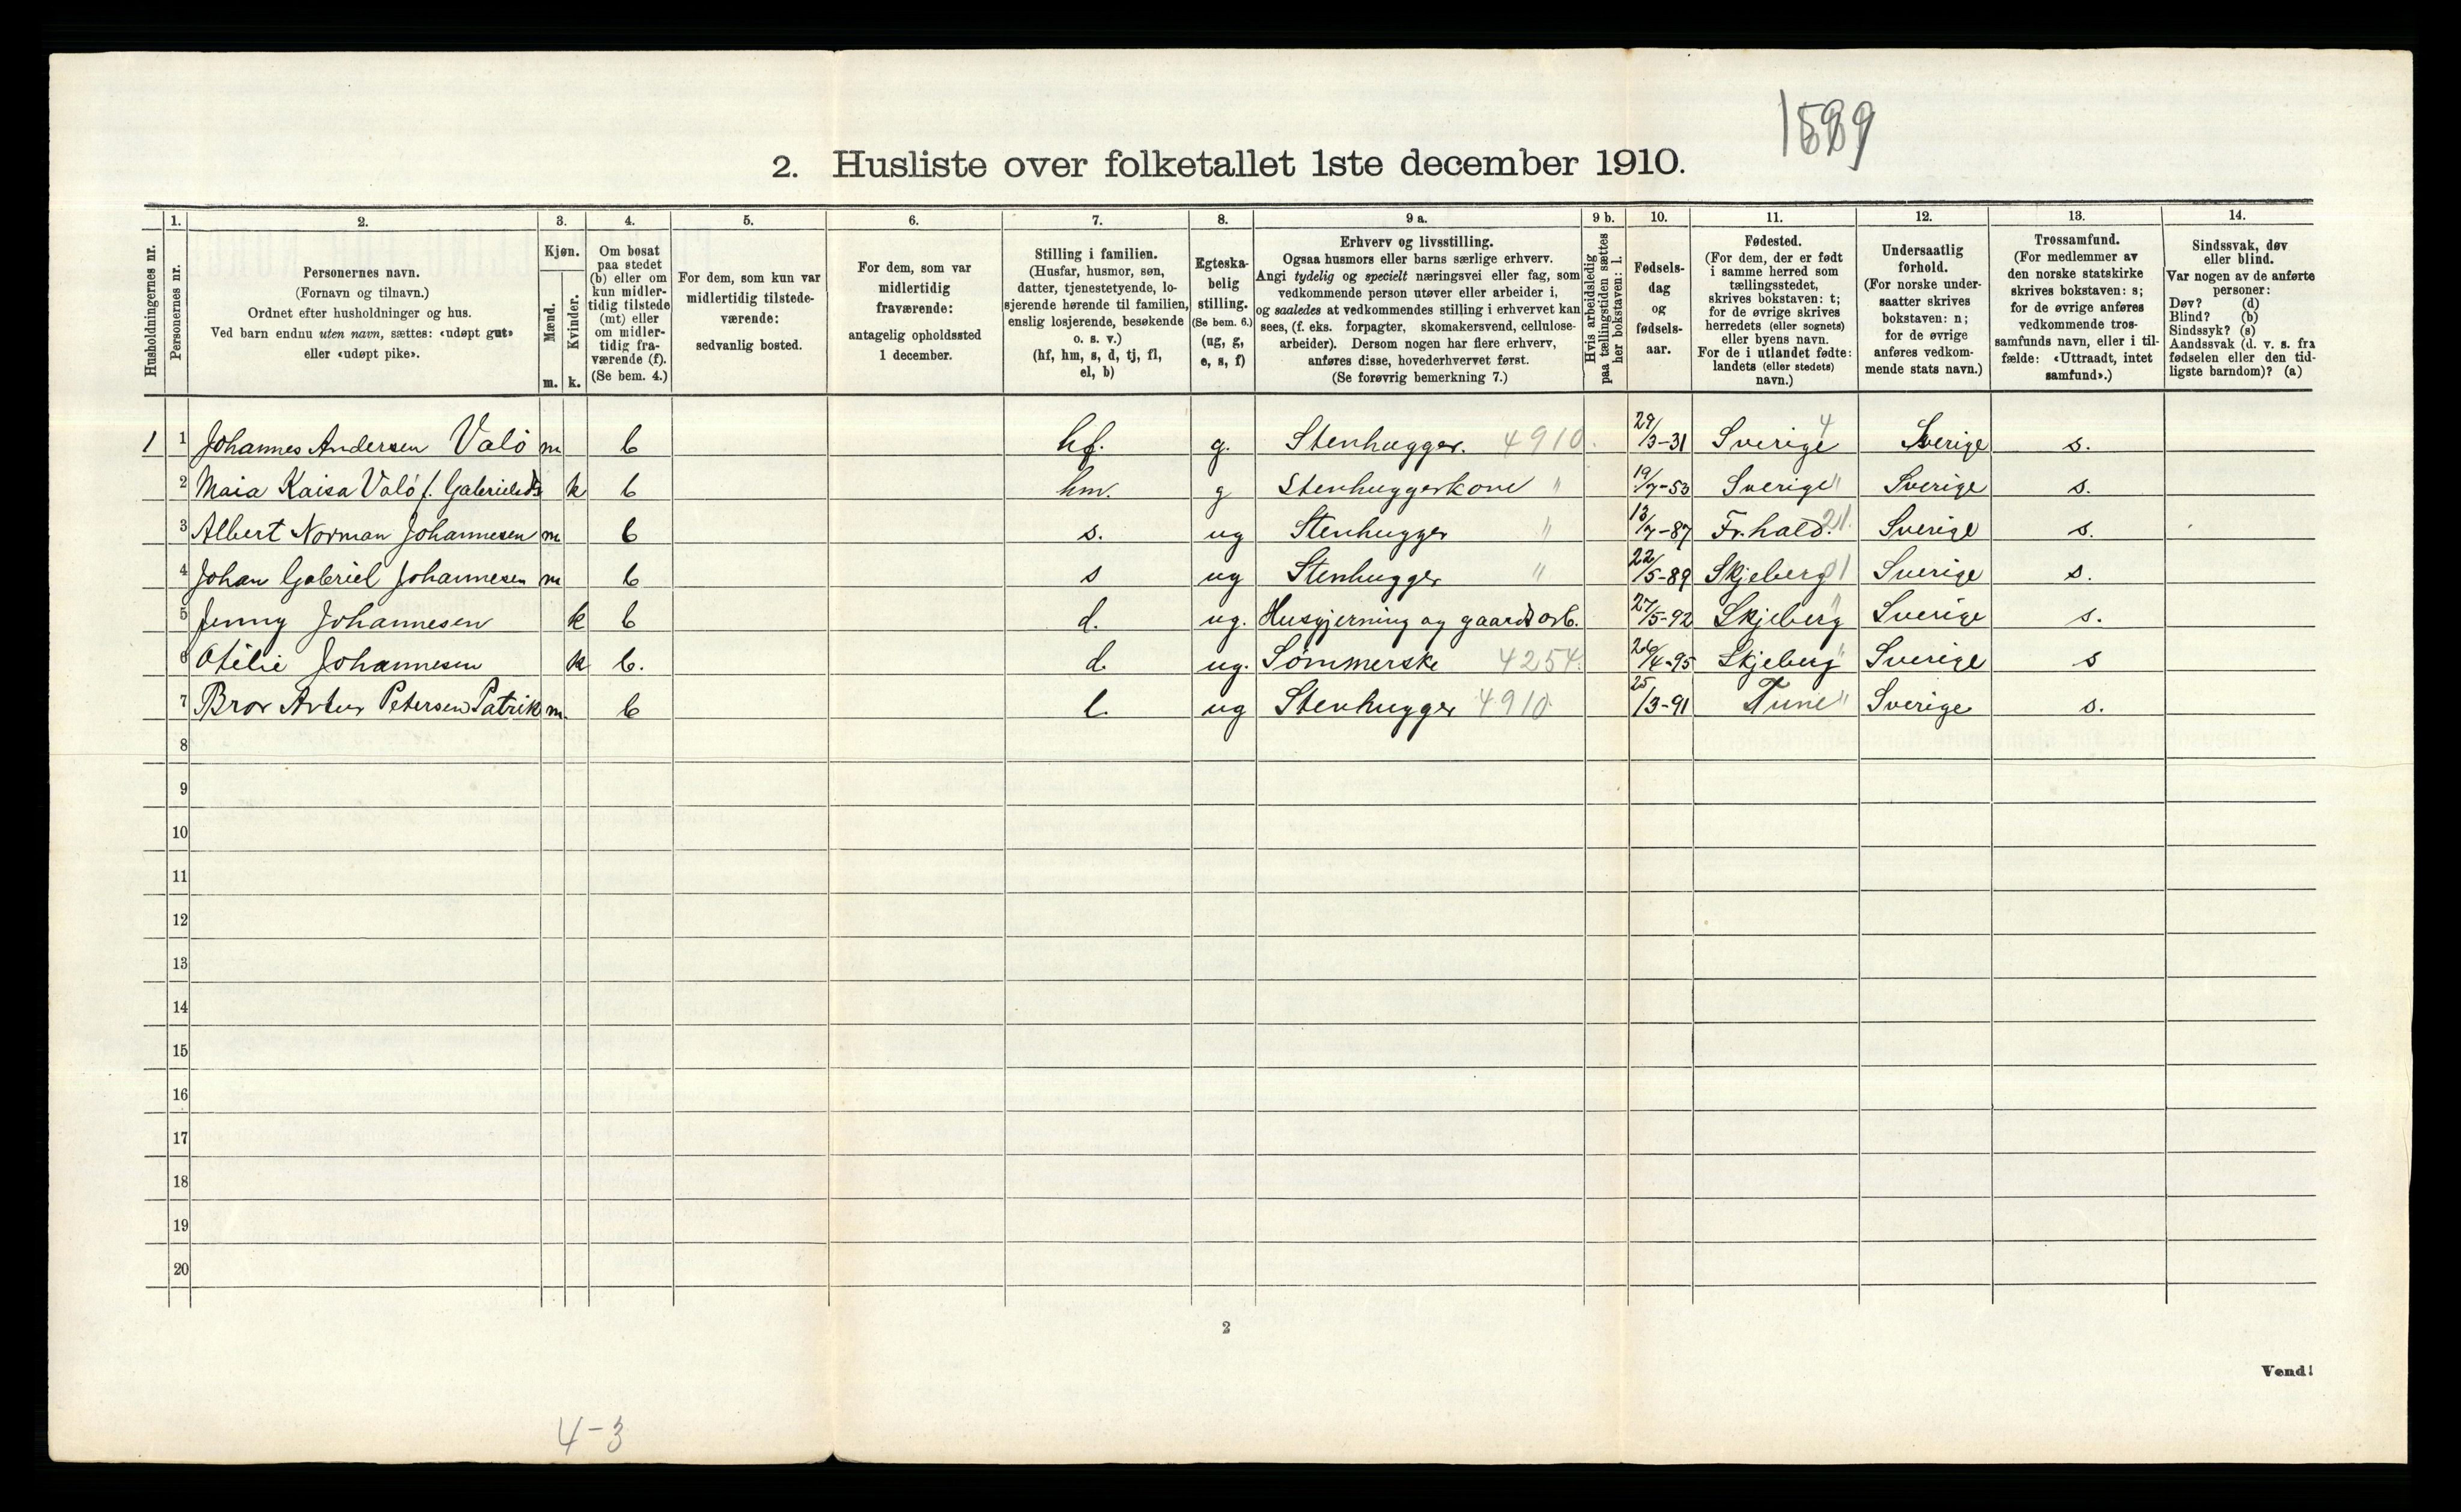 1899
2. Husliste over folketallet 1ste december 1910.
Husholdningernes nr.
1.
Personernes nr.
2.
Personernes navn.
(Fornavn og tilnavn.)
Ordnet efter husholdninger og hus.
Ved barn endnu uten navn, sættes: «udøpt gut»
eller «udøpt pike».
3.
Kjøn.
Mænd.
Kvinder.
m. k.
4.
Om bosat
paa stedet
(b) eller om
kun midler-
tidig tilstede
(mt) eller
om midler-
tidig fra-
værende (f).
(Se bem. 4.)
5.
For dem, som kun var
midlertidig tilstede-
værende:
sedvanlig bosted.
6.
For dem, som var
midlertidig
fraværende:
antagelig opholdssted
1 december.
7.
Stilling i familien.
(Husfar, husmor, søn,
datter, tjenestetyende, lo-
sjerende hørende til familien,
enslig losjerende, besøkende
o. s. v.)
(hf, hm, s, d, tj, fl,
el, b)
8.
Egteska-
belig
stilling.
(Se bem. 6.)
(ug, g,
e, s, f)
9 a.
Erhverv og livsstilling.
Ogsaa husmors eller barns særlige erhverv.
Angi tydelig og specielt næringsvei eller fag, som
vedkommende person utøver eller arbeider i,
og saaledes at vedkommendes stilling i erhvervet kan
sees, (f. eks. forpagter, skomakersvend, cellulose-
arbeider). Dersom nogen har flere erhverv,
anføres disse, hovederhvervet først.
(Se forøvrig bemerkning 7.)
9 b.
Hvis arbeidsledig
paa tællingstiden sættes
her bokstaven: l.
10.
Fødsels-
dag
og
fødsels-
aar.
11.
Fødested.
(For dem, der er født
i samme herred som
tællingsstedet,
skrives bokstaven: t;
for de øvrige skrives
herredets (eller sognets)
eller byens navn.
For de i utlandet fødte:
landets (eller stedets)
navn.)
12.
Undersaatlig
forhold.
(For norske under-
saatter skrives
bokstaven: n;
for de øvrige
anføres vedkom-
mende stats navn.)
13.
Trossamfund.
(For medlemmer av
den norske statskirke
skrives bokstaven: s;
for de øvrige anføres
vedkommende tros-
samfunds navn, eller i til-
fælde: «Uttraadt, intet
samfund».)
14.
Sindssvak, døv
eller blind.
Var nogen av de anførte
personer:
Døv? (d)
Blind? (b)
Sindssyk? (s)
Aandssvak (d. v. s. fra
fødselen eller den tid-
ligste barndom)? (a)
1 1 Johannes Andersen Valö m b hf. g. Stenhugger. 4910. 29/3-31 Sverige 4 Sverige s.
2 Maia Kaisa Valö f. Gabrielsd k b hm. g Stenhuggerkone " 19/7-53 Sverige " Sverige s.
3 Albert Norman Johannesen m b s. ug Stenhugger " 13/7-87 Fr.hald. 21. Sverige s.
4 Johan Gabriel Johannesen m b s ug Stenhugger " 22/5-89 Skjeberg 01 Sverige s.
5 Jenny Johannesen k b d. ug. Husgjerning og gaardsarb. 27/5-92 Skjeberg " Sverige s.
6 Otilie Johannesen k b. d. ug. Sömmerske 4254. 26/4-95 Skjeberg " Sverige s
7 Bror Artur Petersen Patrik m. b l. ug Stenhugger 4910 25/3-91 Tune " Sverige s.
8
9
10
11
12
13
14
15
16
17
18
19
20
2
Vend!
4-3